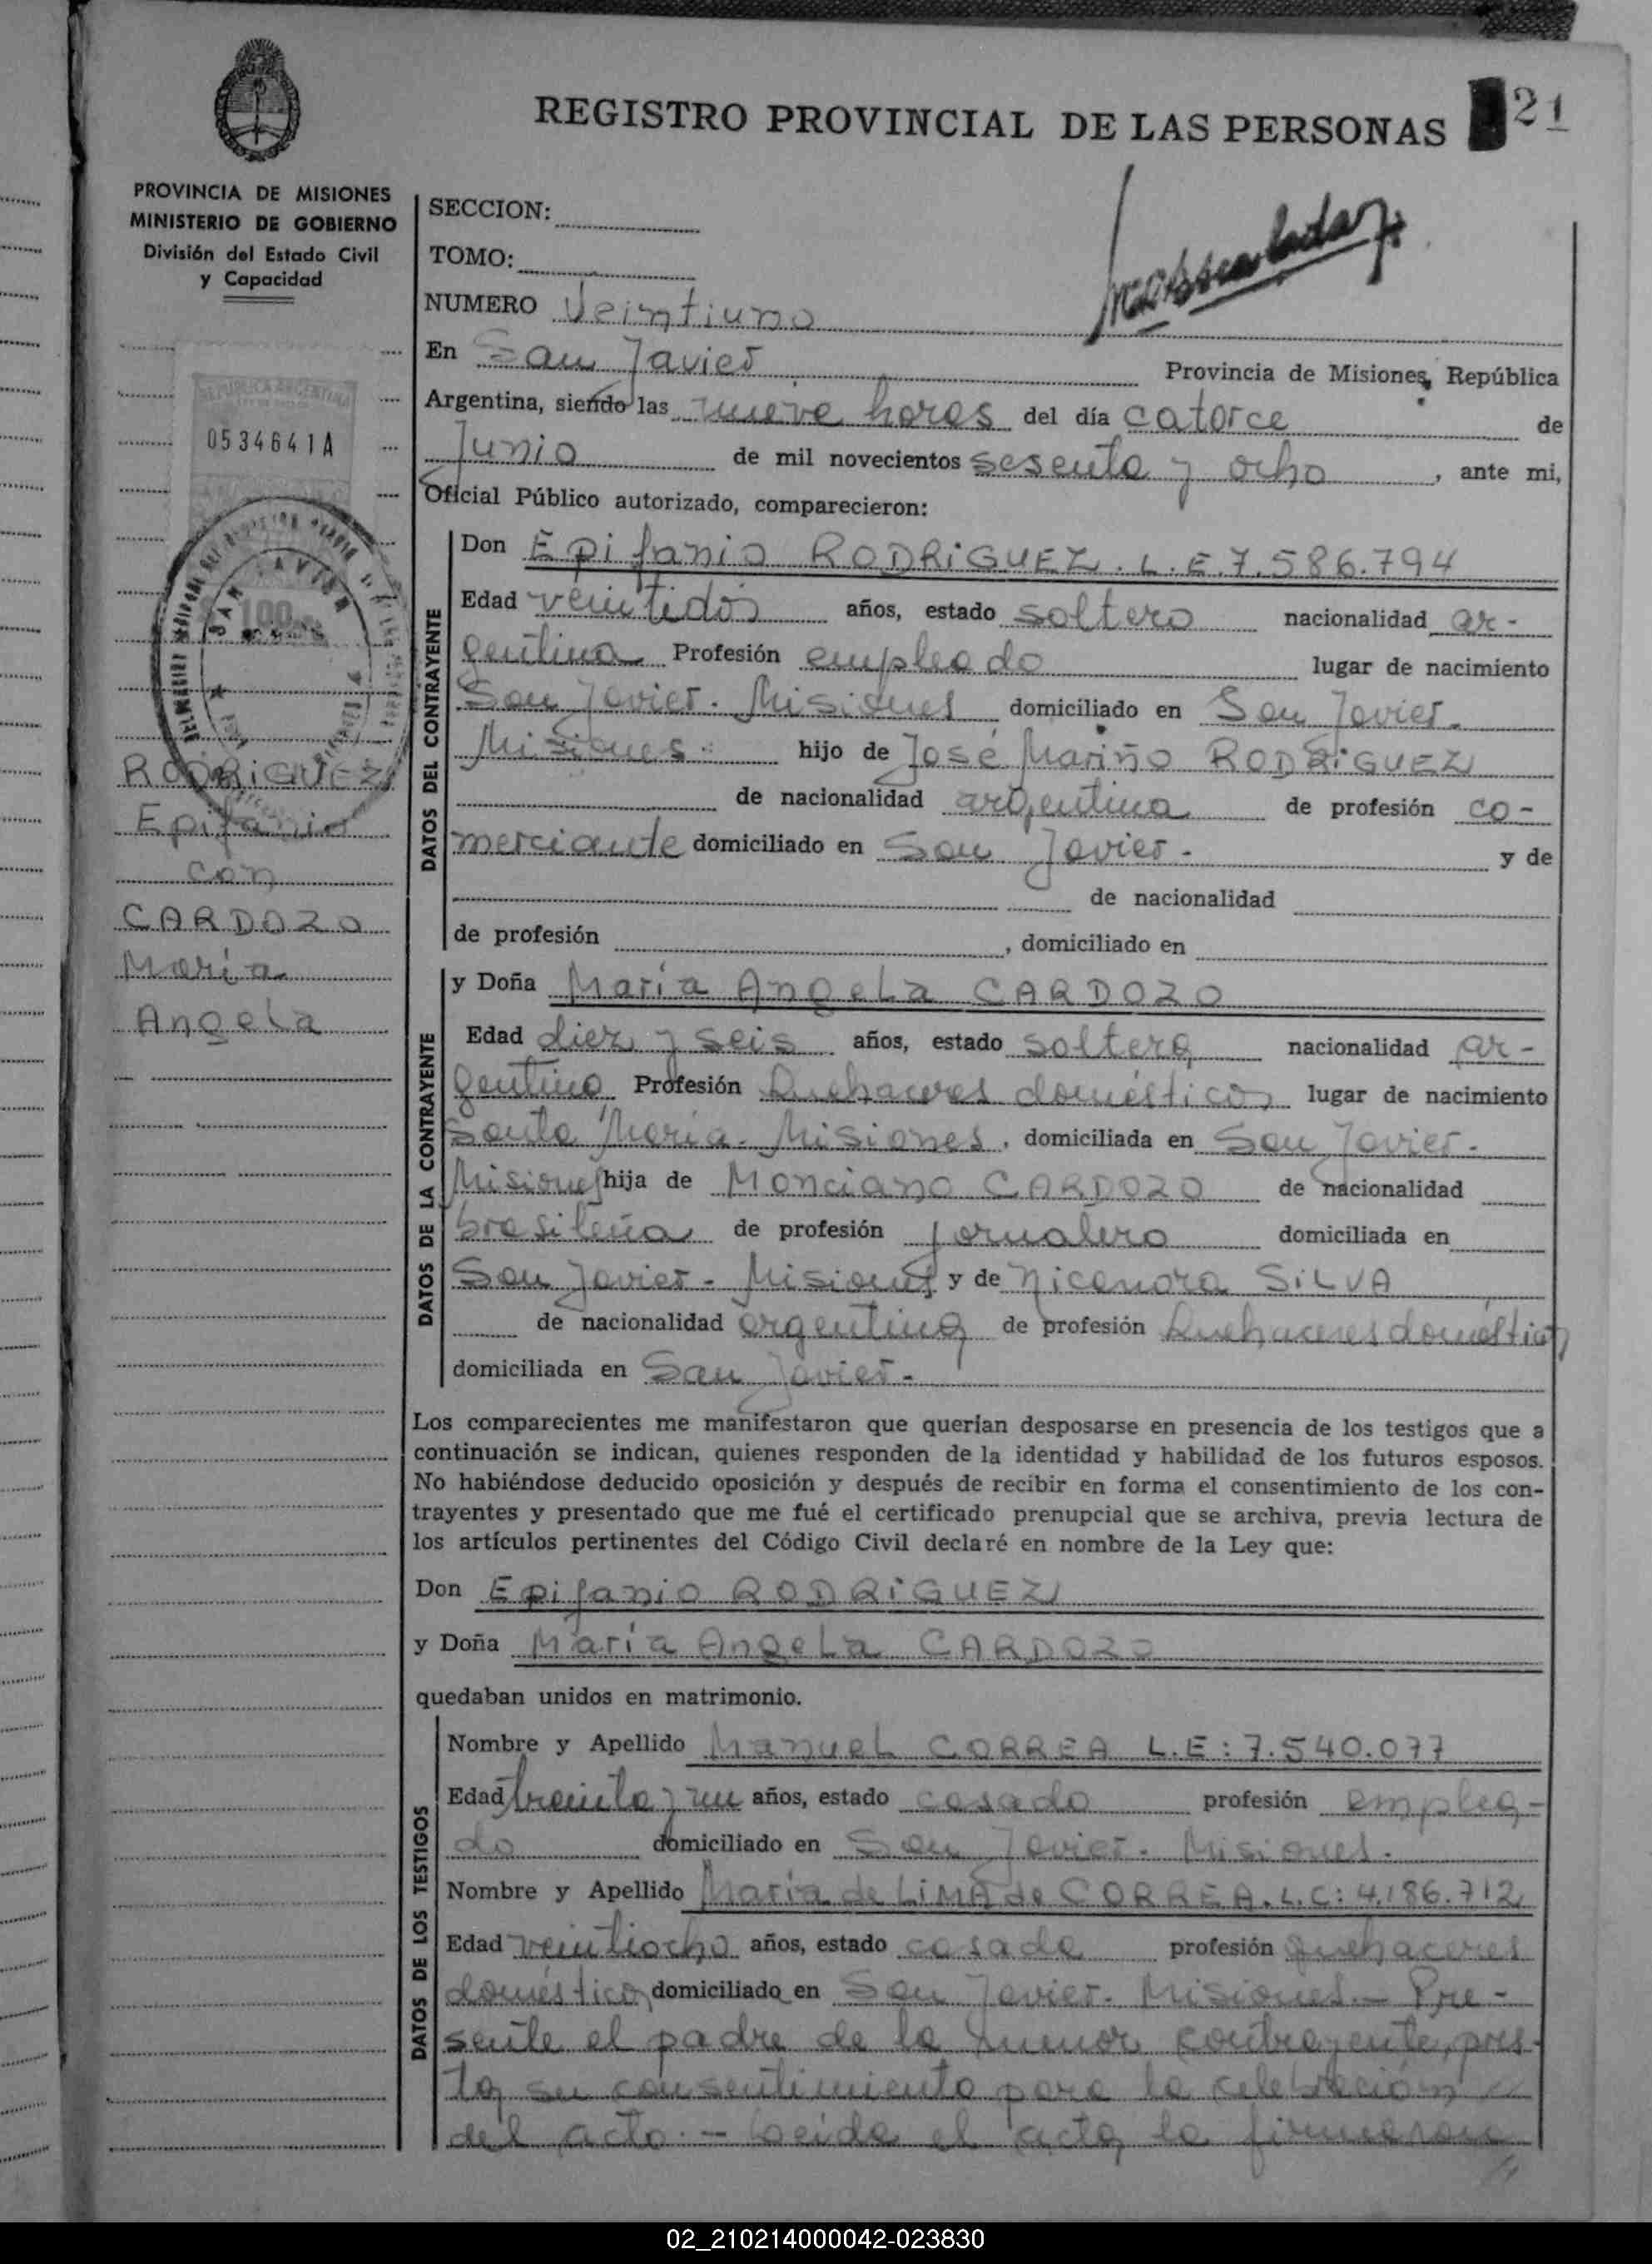 REGISTRO PROVINCIAL DE LAS PERSONAS
21
PROVINCIA DE MISIONES
MINISTERIO DE GOBIERNO
División del Estado Civil
y Capacidad
0534641A
100
RODRiGUEZ
Epifanio
con
CARDOZO
María
Angela
SECCION:
TOMO:
NUMERO Veintiuno
En San Javier Provincia de Misiones, República
Argentina, siendo las nueve horas del día catorce de
Junio de mil novecientos sesenta y ocho, ante mi,
Oficial Público autorizado, comparecieron:
DATOS DEL CONTRAYENTE
Don Epifanio RODRiGUEZ. L.E.7.586.794
Edad veintidós años, estado soltero nacionalidad ar-
gentina Profesión empleado lugar de nacimiento
San Javier. Misiones domiciliado en San Javier.
Misiones. hijo de José Mariño RODRiGUEZ
de nacionalidad argentina de profesión co-
merciante domiciliado en San Javier. y de
de nacionalidad
de profesión , domiciliado en
DATOS DE LA CONTRAYENTE
y Doña María Angela CARDOZO
Edad diez y seis años, estado soltera nacionalidad ar-
gentina Profesión Quehaceres domésticos lugar de nacimiento
Santa María. Misiones, domiciliada en San Javier.
Misiones hija de Monciano CARDOZO de nacionalidad
brasileña de profesión jornalero domiciliada en
San Javier. Misiones y de Nicanora SiLVA
de nacionalidad argentina de profesión Quehaceres domésticos
domiciliada en San Javier.
Los comparecientes me manifestaron que querían desposarse en presencia de los testigos que a
continuación se indican, quienes responden de la identidad y habilidad de los futuros esposos.
No habiéndose deducido oposición y después de recibir en forma el consentimiento de los con-
trayentes y presentado que me fué el certificado prenupcial que se archiva, previa lectura de
los artículos pertinentes del Código Civil declaré en nombre de la Ley que:
Don Epifanio RODRiGUEZ
y Doña María Angela CARDOZO
quedaban unidos en matrimonio.
DATOS DE LOS TESTIGOS
Nombre y Apellido Manuel CORREA L.E: 7.540.077
Edad treinta y un años, estado casado profesión emplea-
do domiciliado en San Javier. Misiones.
Nombre y Apellido María de LiMA de CORREA. L.C: 4.186.712
Edad veintiocho años, estado casada profesión Quehaceres
domésticos domiciliado en San Javier. Misiones.- Pre-
sente el padre de la menor contrayente, pres-
ta su consentimiento para la celebración
del acto.- Leida el acta, la firmaron
02_210214000042-023830